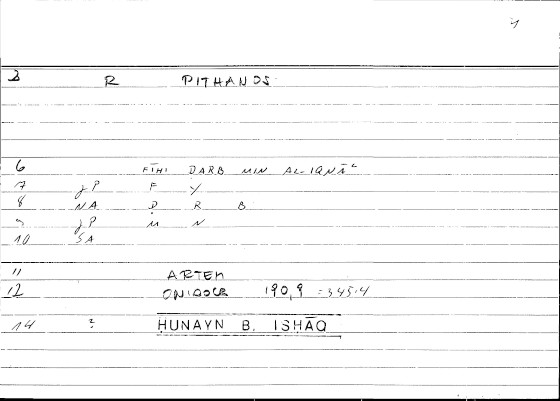 R PITHANOS
6 FĪHI DARB MIN AL-IQNĀʿ
7 JP F Y
8 NA Ḍ R B
JP M N
10 SA
11 ARTEM
12 ONIROCR 190,9 = 345,4
14 ? ḤUNAYN B. ISḤĀQ